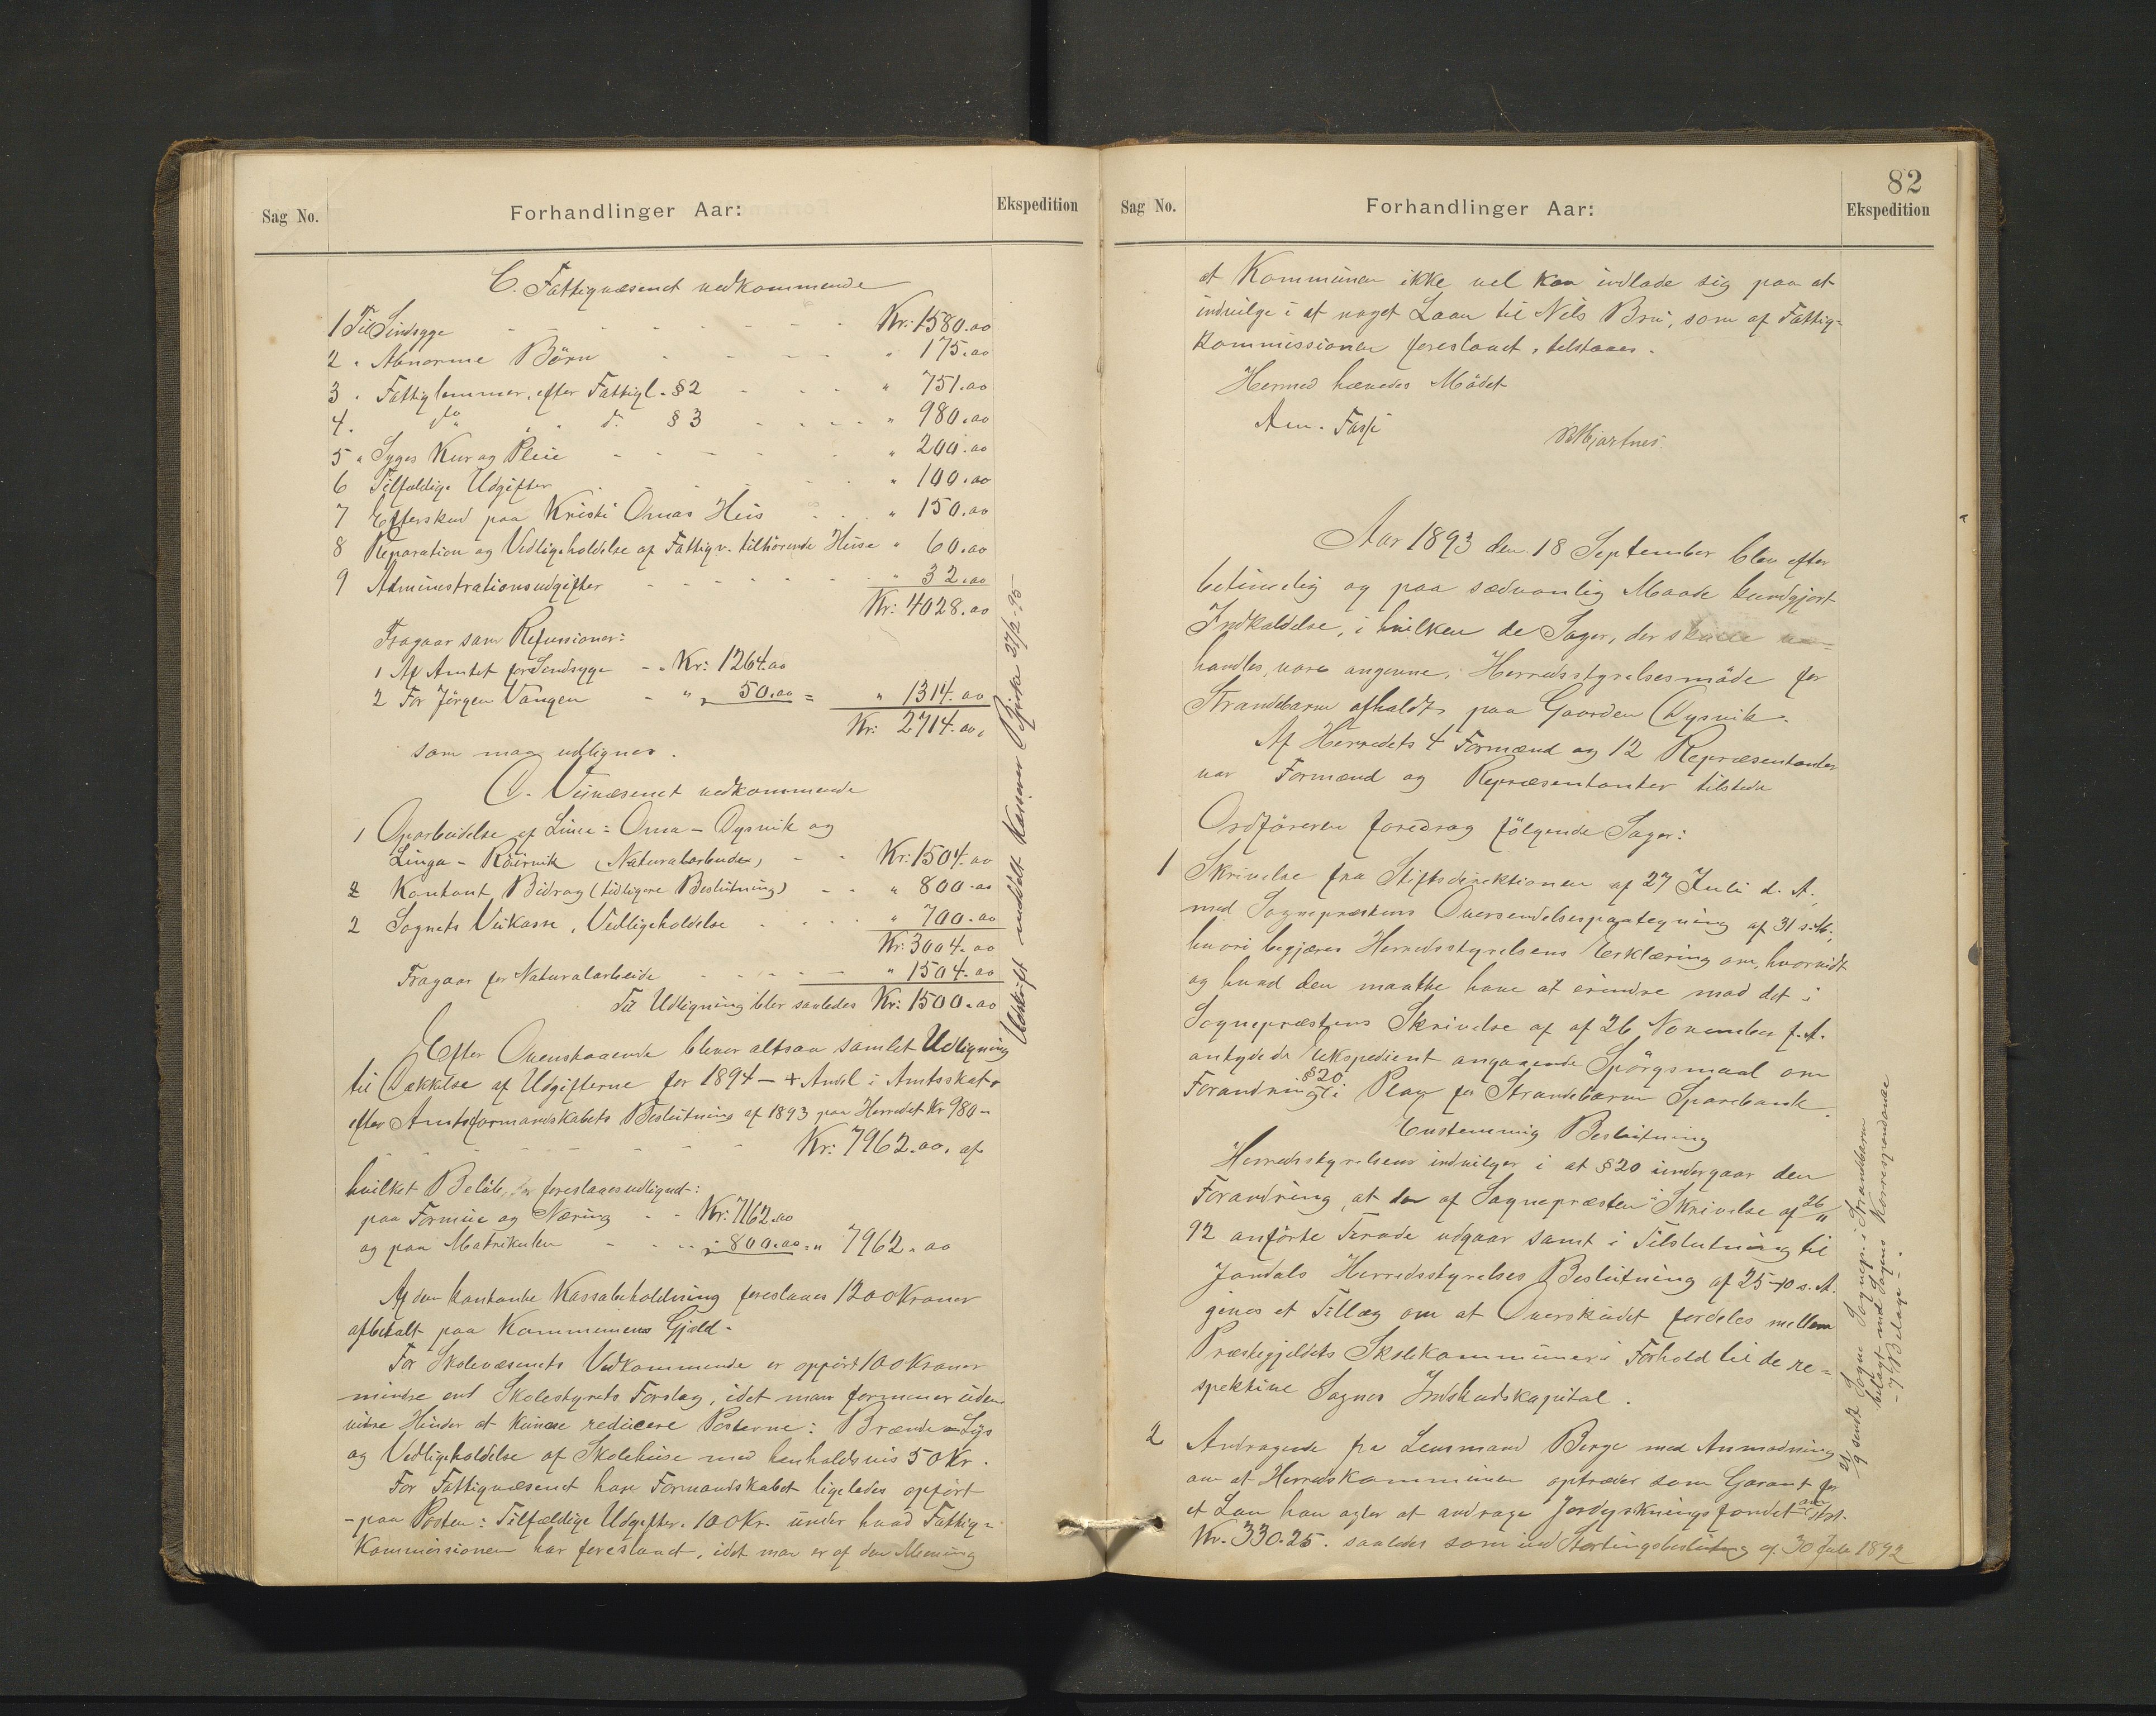 Sag No.
Forhandlinger Aar:
Ekspedition
C. Fattigvæsenet vedkommende
1 Til Sindsyge - - - Kr: 1580.00
2 " Abnorme Börn - - - " 175.00
3 " Fattiglemmer, efter Fattigl. §2 - - " 751.00
4. do " d: §3 - - - " 980.00
5 " Syges Kur og Pleie - - - " 200.00
6 Tilfældige Udgifter - - - " 100.00
7 Efterskud paa Kristi Omas Hus - - " 150.00
8 Reparation og Vedligeholdelse af Fattigv. tilhörende Huse " 60.00
9 Administrationsudgifter - - - " 32.00
Kr: 4028.00
Fragaar som Refusioner:
1 Af Amtet for Sindsyge - - Kr: 1264.00
2 For Jörgen Vangen - " 50.00 = " 1314.00
Kr: 2714.00,
som maa udlignes.
D. Veivæsenet vedkommende
1 Oparbeidelse af Linie: Oma - Dysvik og
Linga - Röirvik (Naturalarbeide) - - Kr: 1504.00
2 Kontant Bidrag (tidligere Beslutning) - - " 800.00
2 Sognets Veikasse, Vedligeholdelse - - " 700.00
Kr: 3004.00
Fragaar for Naturalarbeide - - - " 1504.00
Til Udligning blir saaledes Kr: 1500.00
Efter Ovenstaaende bliver altsaa samlet Udligning
til Dækkelse af Udgifterne for 1894 - + Andel i Amtsskat
efter Amtsformandskabets Beslutning af 1893 paa Herredet Kr 980 -
- - - Kr: 7962.00. af
hvilket Belöb, foreslaaes udlignet:
paa Formue og Næring - - Kr: 7162.00
og paa Matrikulen - - " 800.00 = " 7962.00
Af den kontante Kassabeholdning foreslaaes 1200 Kroner
afbetalt paa Kommunens Gjæld.
For Skolevæsenets Vedkommende er opfört 100 Kroner
mindre end Skolestyrets Forslag, idet man formener uden
videre Hinder at kunne reducere Posterne: Brænde Lys
og Vedligeholdelse af Skolehuse med henholdsvis 50 Kr.
For Fattigvæsenet have Formandskabet ligeledes opfört
- paa Posten: Tilfældige Udgifter. 100 Kr. under hvad Fattig=
Kommissionen har foreslaaet, idet man er af den Mening
Udskrift meddelt Kasserer Bjirke 27/2-95
82
Sag No.
Forhandlinger Aar:
Ekspedition
at Kommunen ikke vel kan indlade sig paa at
indvilge i at noget Laan til Nils Bru, som af Fattig=
Kommissionen foreslaaet, tilstaaes.
Hermed hævedes Mödet
Am. Fosse
Mjartnes.
Aar 1893 den 18 September blev efter
betimelig og paa sædvanlig Maade kundgjort
Indkaldelse, i hvilken de Sager, der skulde be=
handles, vare angivne, Herredsstyrelsesmöde for
Strandebarm afholdt paa Gaarden Dysvik.
Af Herredets 4 Formænd og 12 Repræsentanter
var Formænd og Repræsentanter tilstede
Ordföreren foredrag fölgende Sager:
1 Skrivelse fra Stiftsdirektionen af 27 Juli d. A.,
med Sognepræstens Oversendelsespaategning af 31 s. M.,
hvori begjæres Herredsstyrelsens Erklæring om, hvorvidt
og hvad den maatte have at erindre mod det i
Sognepræstens Skrivelse af af 26 November f. A.
antydede Ekspedient angaaende Spörgsmaal om
Forandring i §20 i Plan for Strandebarm Sparebank.
Enstemmig Beslutning
Herredsstyrelsens indvilger i at §20 undergaar den
Forandring, at den af Sognepræsten i Skrivelse af 26/11
92 anförte Tirade udgaar samt i Tilslutning til
Jondals Herredsstyrelses Beslutning af 25-10 s. A.
gives et Tillæg om at Overskudet fordeles mellem
Præstegjeldets Skolekommuner i Forhold til de re=
spektive Sognes Indskudskapital.
2 Andragende fra Lensmand Berge med Anmodning
om at Herredskommunen optræder som Garant for
et Laan han agter at andrage Jorddyrkningsfondet om, stort
Kr. 330.25. saaledes som ved Stortingsbeslutning af 30 Juli 1892
21/9 sendt Sogne Sognepr. i Strandebarm
bilagt med Sagens Korrespondance
- 7 Bilage -